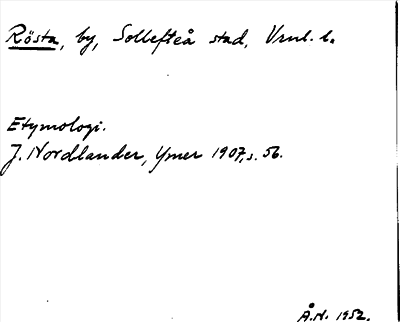 Rösta, by, Sollefteå stad, Vrnl. l.
Etymologi.
J. Nordlander, Ymer 1907, s. 56.
Å.H. 1952.